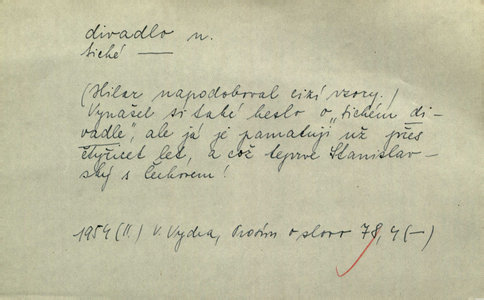 divadlo n.
tiché —
(Hilar napodoboval cizí vzory.)
Vynašel si také heslo o „tichém di-
vadle", ale já je pamatuji už přes
čtyřicet let, a což teprve Stanislav-
ský s Čechovem!
1954 (II.) V. Vydra, Prosím o slovo 78, 4 (—)